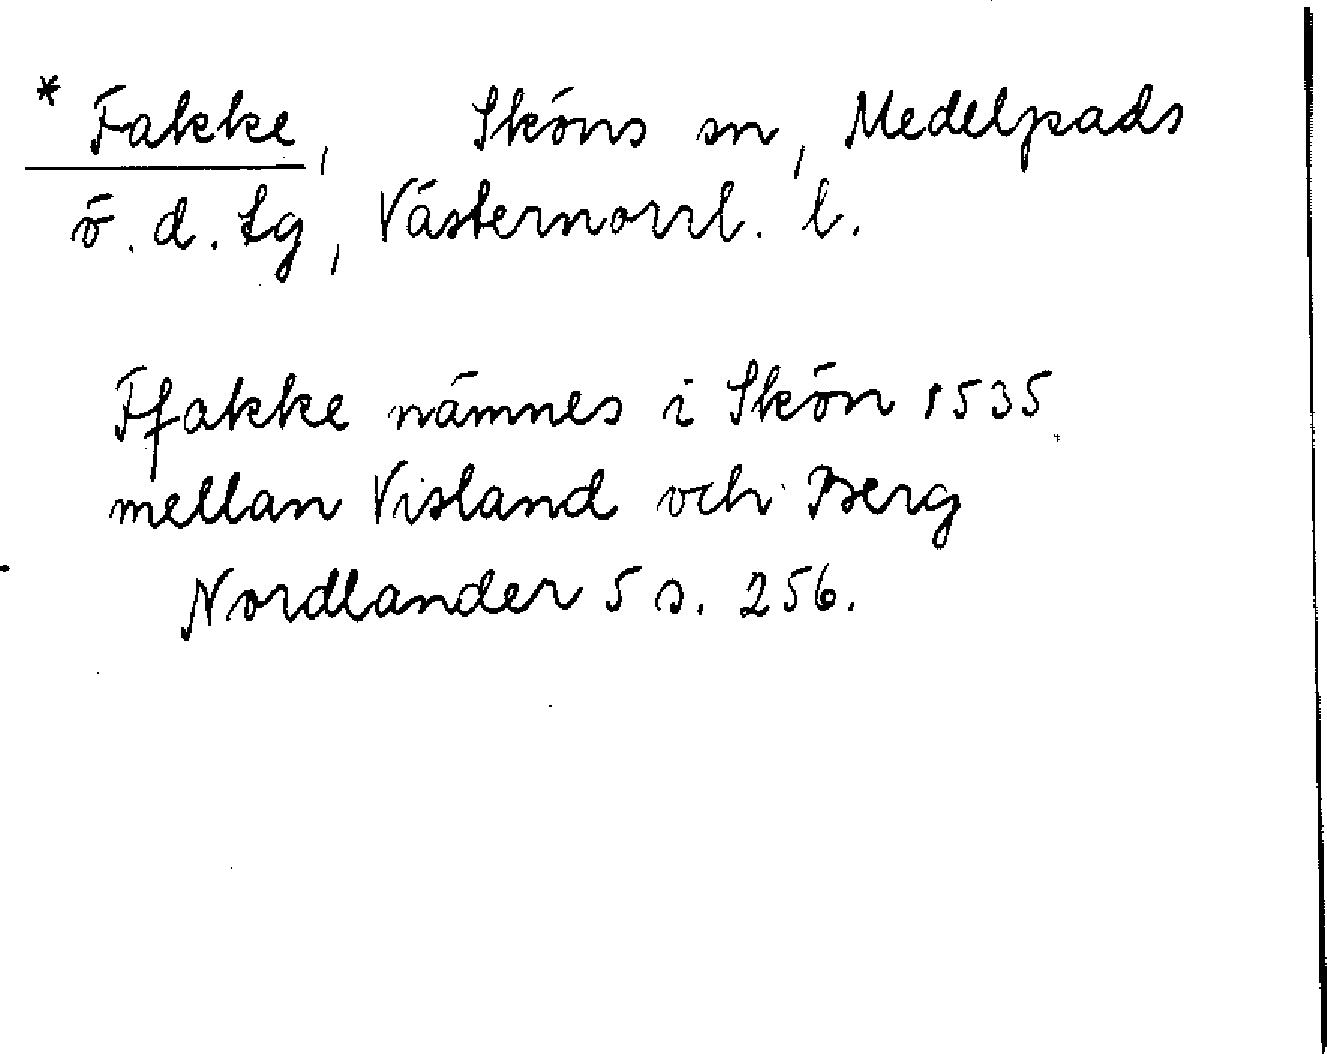 * Fakke, Sköns sn, Medelpads
ö. d. tg, Västernorrl. l.
Ffakke nämnes i Skön 1535
mellan Visland och Berg
Nordlander 5 s. 256.